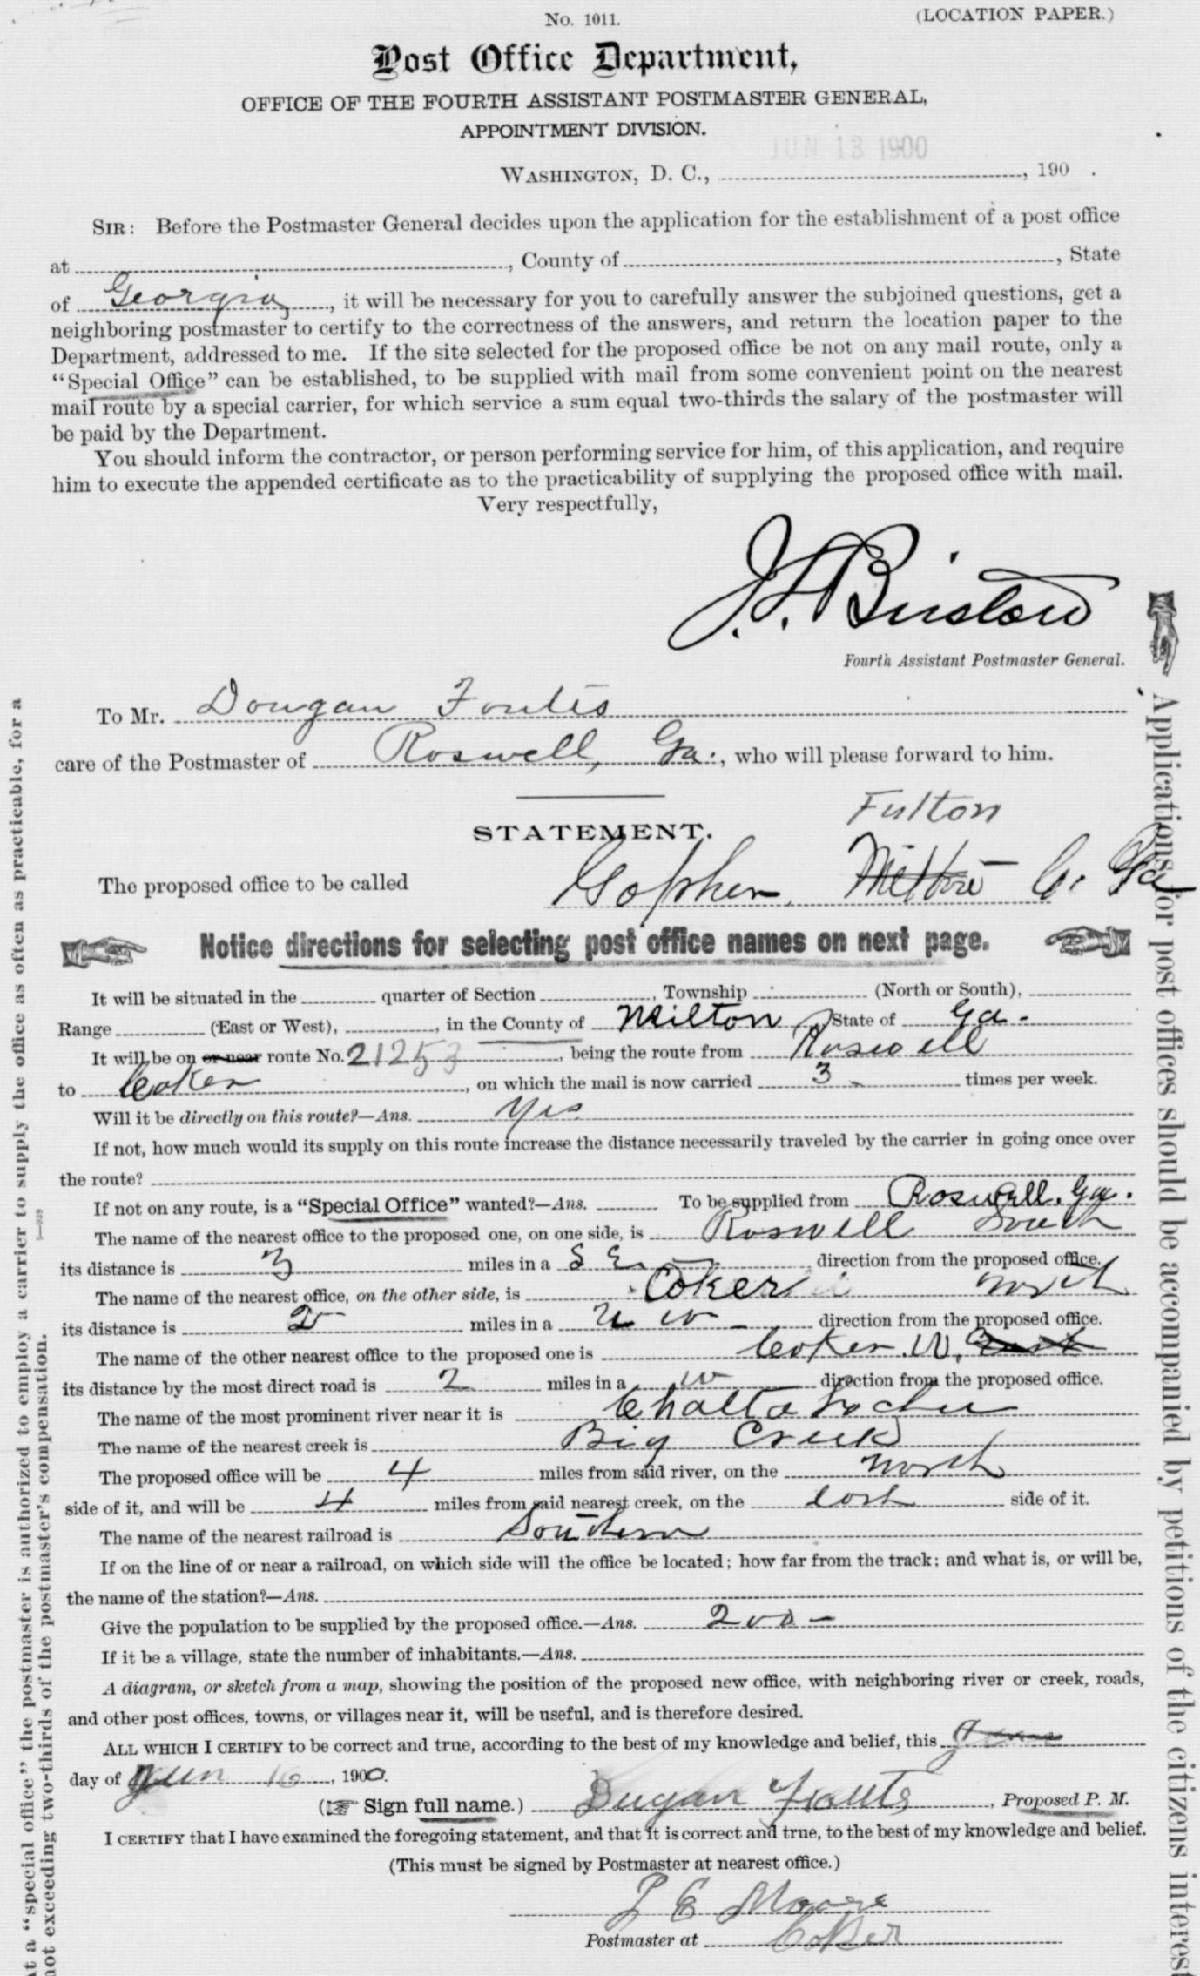 No. 1011.
(LOCATION PAPER.)
Post Office Department,
OFFICE OF THE FOURTH ASSISTANT POSTMASTER GENERAL,
APPOINTMENT DIVISION.
JUN 13 1900
WASHINGTON, D. C., , 190 .
SIR: Before the Postmaster General decides upon the application for the establishment of a post office
at , County of , State
of Georgia , it will be necessary for you to carefully answer the subjoined questions, get a
neighboring postmaster to certify to the correctness of the answers, and return the location paper to the
Department, addressed to me. If the site selected for the proposed office be not on any mail route, only a
“Special Office” can be established, to be supplied with mail from some convenient point on the nearest
mail route by a special carrier, for which service a sum equal two-thirds the salary of the postmaster will
be paid by the Department.
You should inform the contractor, or person performing service for him, of this application, and require
him to execute the appended certificate as to the practicability of supplying the proposed office with mail.
Very respectfully,
J. L. Bristow
Fourth Assistant Postmaster General.
To Mr. Dougan Fouts
care of the Postmaster of Roswell, Ga. , who will please forward to him.
STATEMENT.
Fulton
The proposed office to be called Gopher, Milton Co. Ga
Notice directions for selecting post office names on next page.
It will be situated in the quarter of Section , Township (North or South),
Range (East or West), , in the County of Milton , State of Ga.
It will be on or near route No. 21253 , being the route from Roswell
to Coker , on which the mail is now carried 3 times per week.
Will it be directly on this route?—Ans. yes
If not, how much would its supply on this route increase the distance necessarily traveled by the carrier in going once over
the route?
If not on any route, is a “Special Office” wanted?—Ans. To be supplied from Roswell. Ga.
The name of the nearest office to the proposed one, on one side, is Roswell South
its distance is 3 miles in a S E direction from the proposed office.
The name of the nearest office, on the other side, is Coker north
its distance is 2 miles in a n w direction from the proposed office.
The name of the other nearest office to the proposed one is Coker. W.
its distance by the most direct road is 2 miles in a w direction from the proposed office.
The name of the most prominent river near it is Chattahochee
The name of the nearest creek is Big Creek
The proposed office will be 4 miles from said river, on the north
side of it, and will be 4 miles from said nearest creek, on the side of it.
The name of the nearest railroad is Southern
If on the line of or near a railroad, on which side will the office be located; how far from the track; and what is, or will be,
the name of the station?—Ans.
Give the population to be supplied by the proposed office.—Ans. 200 —
If it be a village, state the number of inhabitants.—Ans.
A diagram, or sketch from a map, showing the position of the proposed new office, with neighboring river or creek, roads,
and other post offices, towns, or villages near it, will be useful, and is therefore desired.
ALL WHICH I CERTIFY to be correct and true, according to the best of my knowledge and belief, this June
day of Jun 16 , 1900.
(Sign full name.) Dugan Fouts , Proposed P. M.
I CERTIFY that I have examined the foregoing statement, and that it is correct and true, to the best of my knowledge and belief.
(This must be signed by Postmaster at nearest office.)
L E Moore
Postmaster at Coker
Applications for post offices should be accompanied by petitions of the citizens interest
at a “special office” the postmaster is authorized to employ a carrier to supply the office as often as practicable, for a
not exceeding two-thirds of the postmaster's compensation.